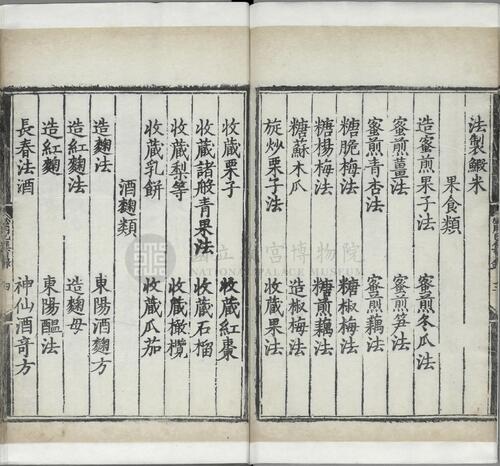 法製鰕米
果食類
造蜜煎果子法 蜜煎冬瓜法
蜜煎薑法 蜜煎笋法
蜜煎青杏法 蜜煎藕法
糖脆梅法 糖椒梅法
糖楊梅法 糖煎藕法
糖蘇木瓜 造椒梅法
旋炒栗子法 收藏果法
收藏栗子 收藏紅棗
收藏諸般青果法 收藏石榴
收藏梨等 收藏橄欖
收藏乳餅 收藏瓜茄
酒麴類
造麴法 東陽酒麴方
造紅麴法 造麴母
造紅麴 東陽醞法
長春法酒 神仙酒竒方
四
國立故宮博物院
NATIONAL PALACE MUSEUM